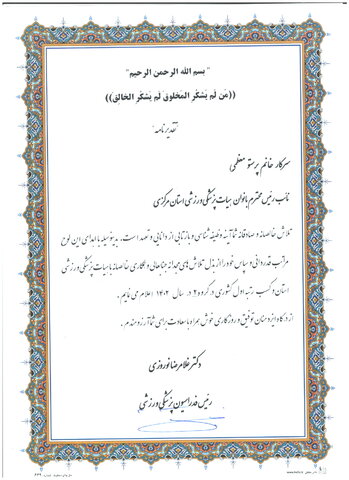 "بسم الله الرحمن الرحیم"
((مَن لَم یَشکُر المَخلوق لَم یَشکُر الخالِق))
"تقدیرنامه"
سرکار خانم پرستو معظمی
نائب رئیس محترم بانوان هیات پزشکی ورزشی استان مرکزی
تلاش خالصانه و صادقانه شما آینه وظیفه شناسی و بازتابی از دانایی و تعهد است، بدینوسیله با اهدای این لوح
مراتب قدردانی و سپاس خود را از بذل تلاش های مجدانه جنابعالی و همکاری خالصانه با هیات پزشکی ورزشی
استان و کسب رتبه اول کشوری در گروه ۲ در سال ۱۴۰۲ اعلام می نمایم.
از درگاه ایزد منان توفیق و روزگاری خوش همراه با سعادت برای شما آرزومندم.
دکتر غلامرضا نوروزی
رئیس فدراسیون پزشکی ورزشی